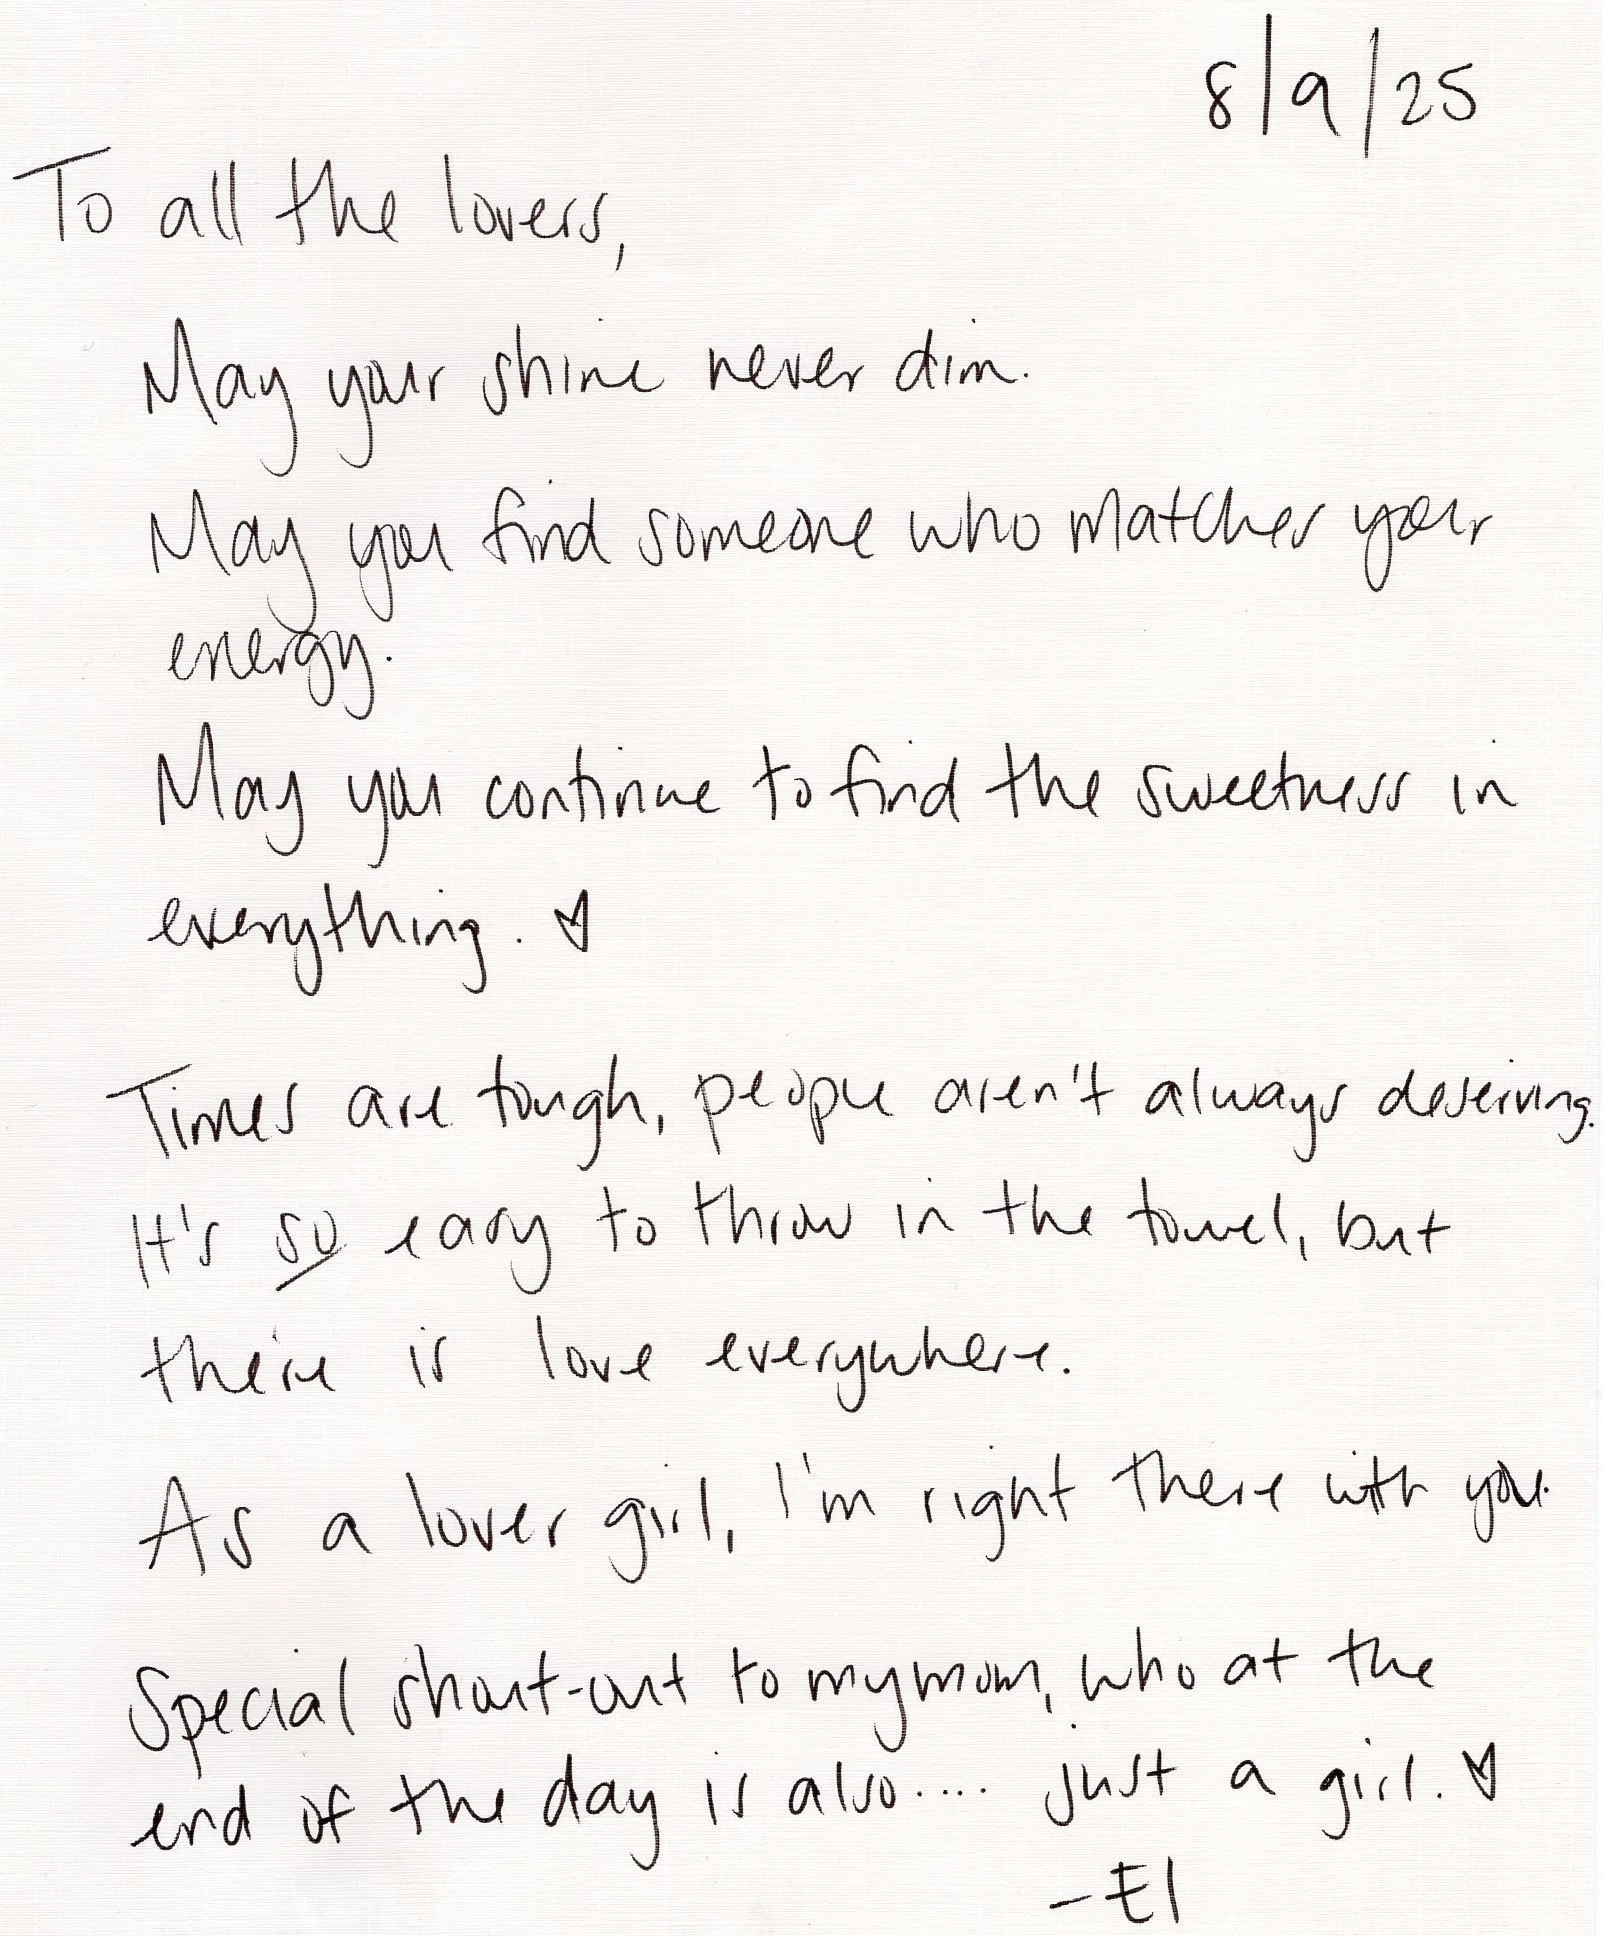 8/9/25
To all the lovers,
May your shine never dim.
May you find someone who matches your
energy.
May you continue to find the sweetness in
everything. ♡
Times are tough, people aren't always deserving.
It's so easy to throw in the towel, but
there is love everywhere.
As a lover girl, I'm right there with you.
Special shout-out to my mom, who at the
end of the day is also.... just a girl. ♡
-El